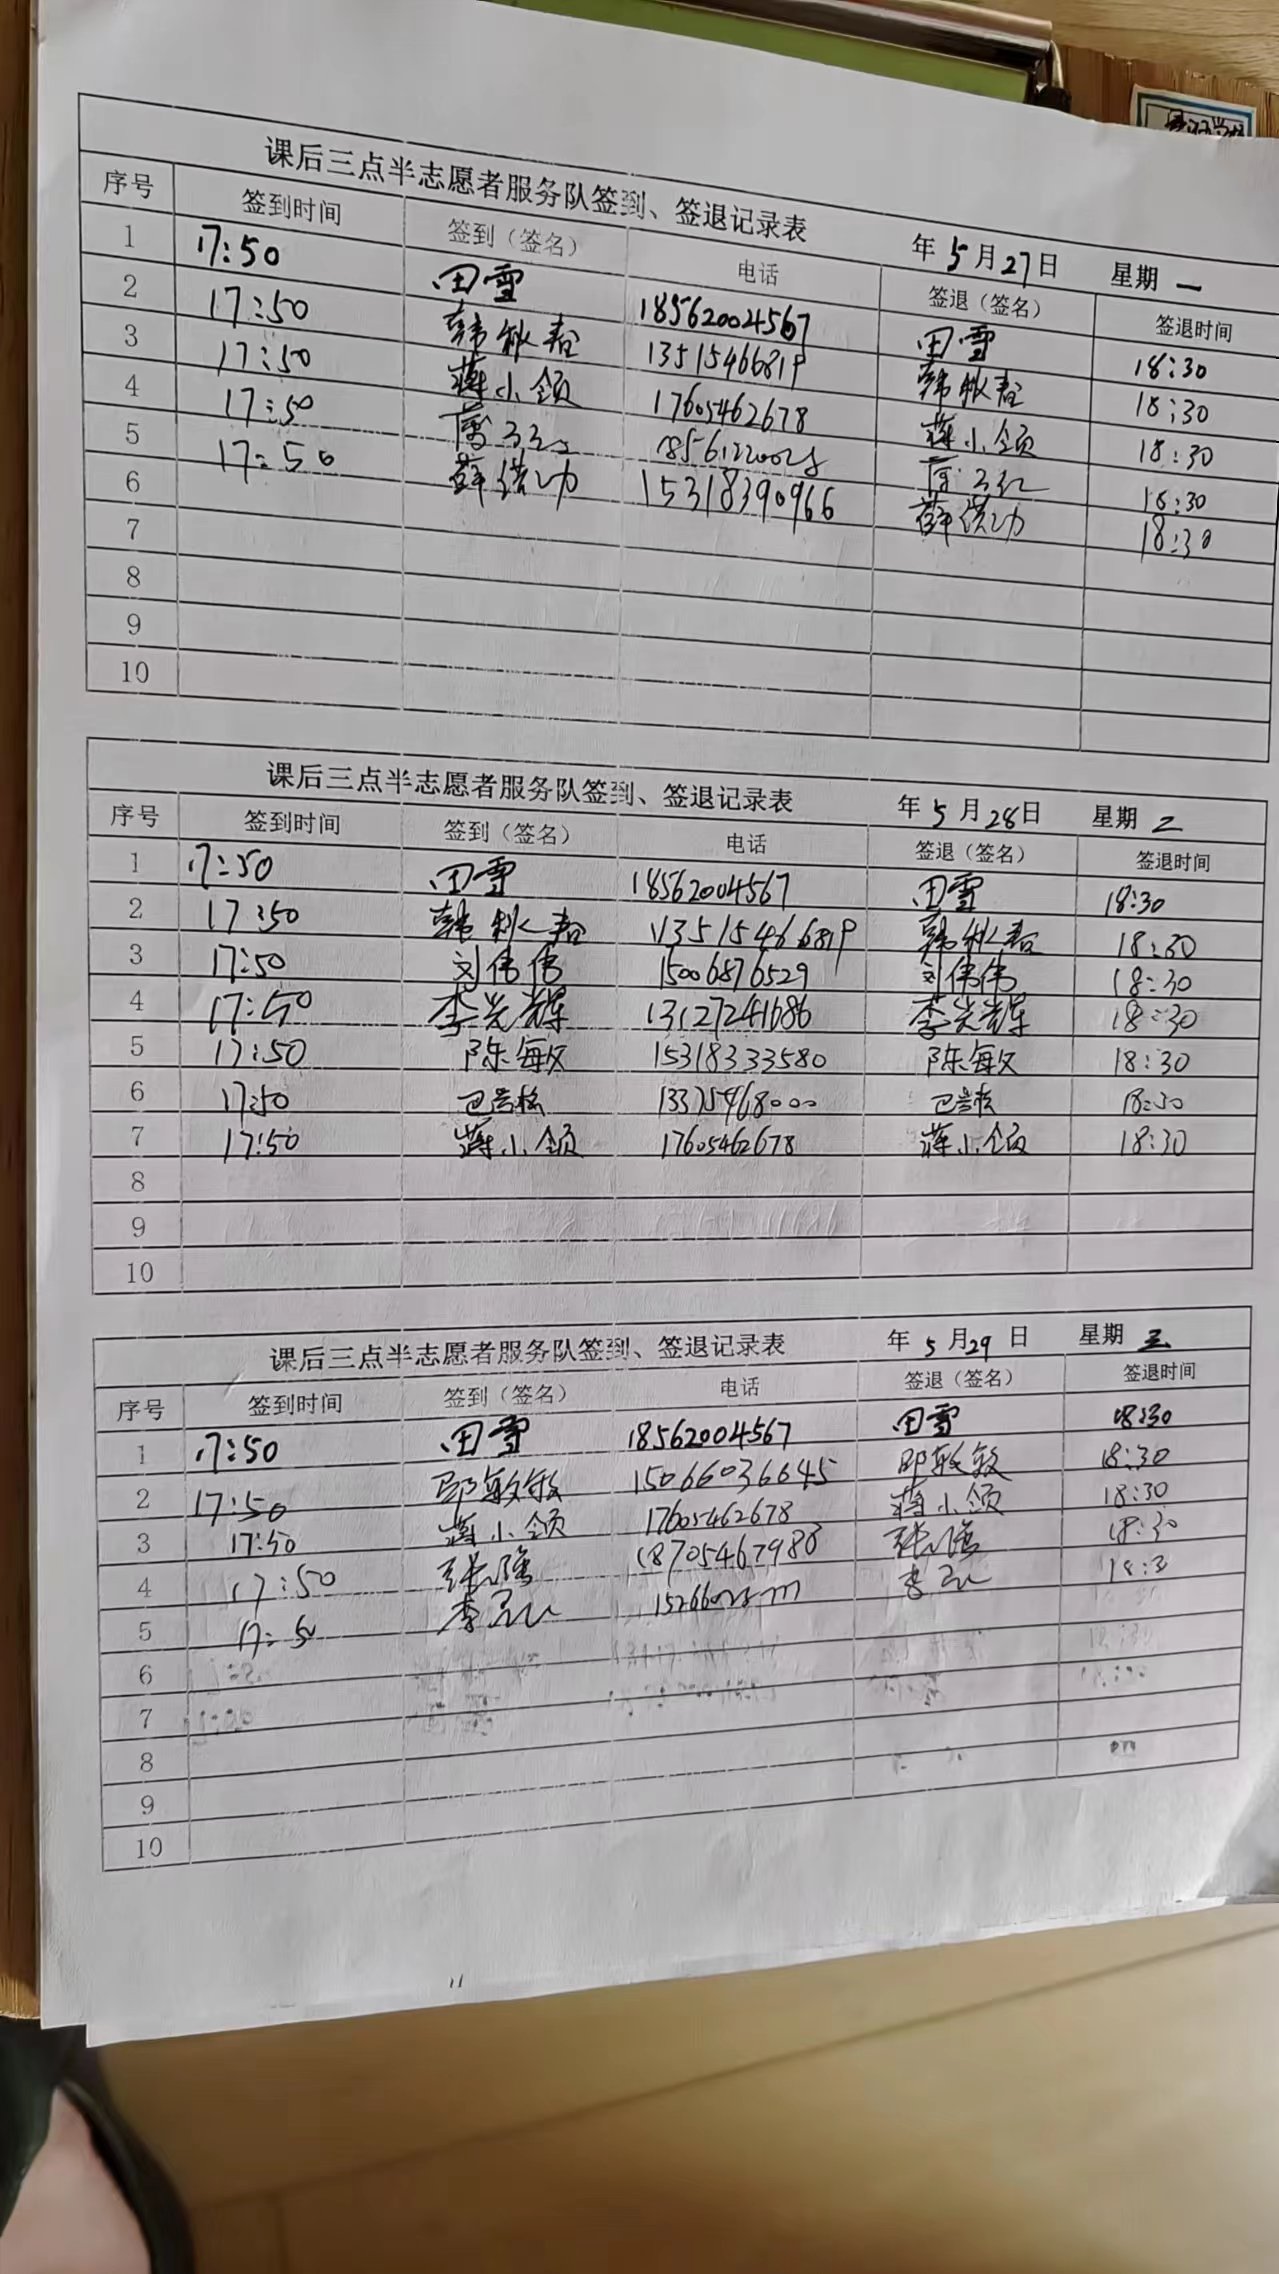 课后三点半志愿者服务队签到、签退记录表 年 5 月 27 日 星期 一
序号 签到时间 签到（签名） 电话 签退（签名） 签退时间
1 17:50 田雪 18562004567 田雪 18:30
2 17:50 韩秋君 13515466819 韩秋君 18:30
3 17:50 蒋小领 17605462678 蒋小领 18:30
4 17:50 18:30
5 17:50 薛洪功 15318390966 薛洪功 18:30
6
7
8
9
10
课后三点半志愿者服务队签到、签退记录表 年 5 月 28 日 星期 二
序号 签到时间 签到（签名） 电话 签退（签名） 签退时间
1 17:50 田雪 18562004567 田雪 18:30
2 17:50 韩秋君 13515466819 韩秋君 18:30
3 17:50 刘伟伟 15006876529 刘伟伟 18:30
4 17:50 李光辉 13127241686 李光辉 18:30
5 17:50 陈敏 15318333580 陈敏 18:30
6 17:50 13375468000 18:30
7 17:50 蒋小领 17605462678 蒋小领 18:30
8
9
10
课后三点半志愿者服务队签到、签退记录表 年 5 月 29 日 星期 三
序号 签到时间 签到（签名） 电话 签退（签名） 签退时间
1 17:50 田雪 18562004567 田雪 18:30
2 17:50 邵敏敏 15066036645 邵敏敏 18:30
3 17:50 蒋小领 17605462678 蒋小领 18:30
4 17:50 张强 18705467988 张强 18:30
5 17:50 18:3
6
7
8
9
10